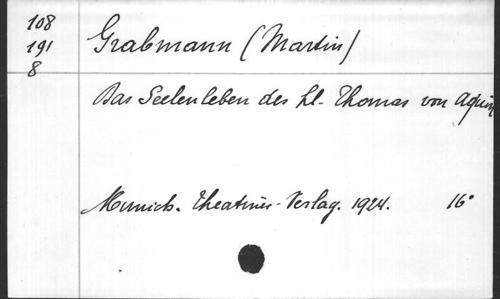 108
191
8
Grabmann (Martin)
Das Seelenleben des hl. Thomas von Aquin
Munich. Theatiner-Verlag. 1924. 16°